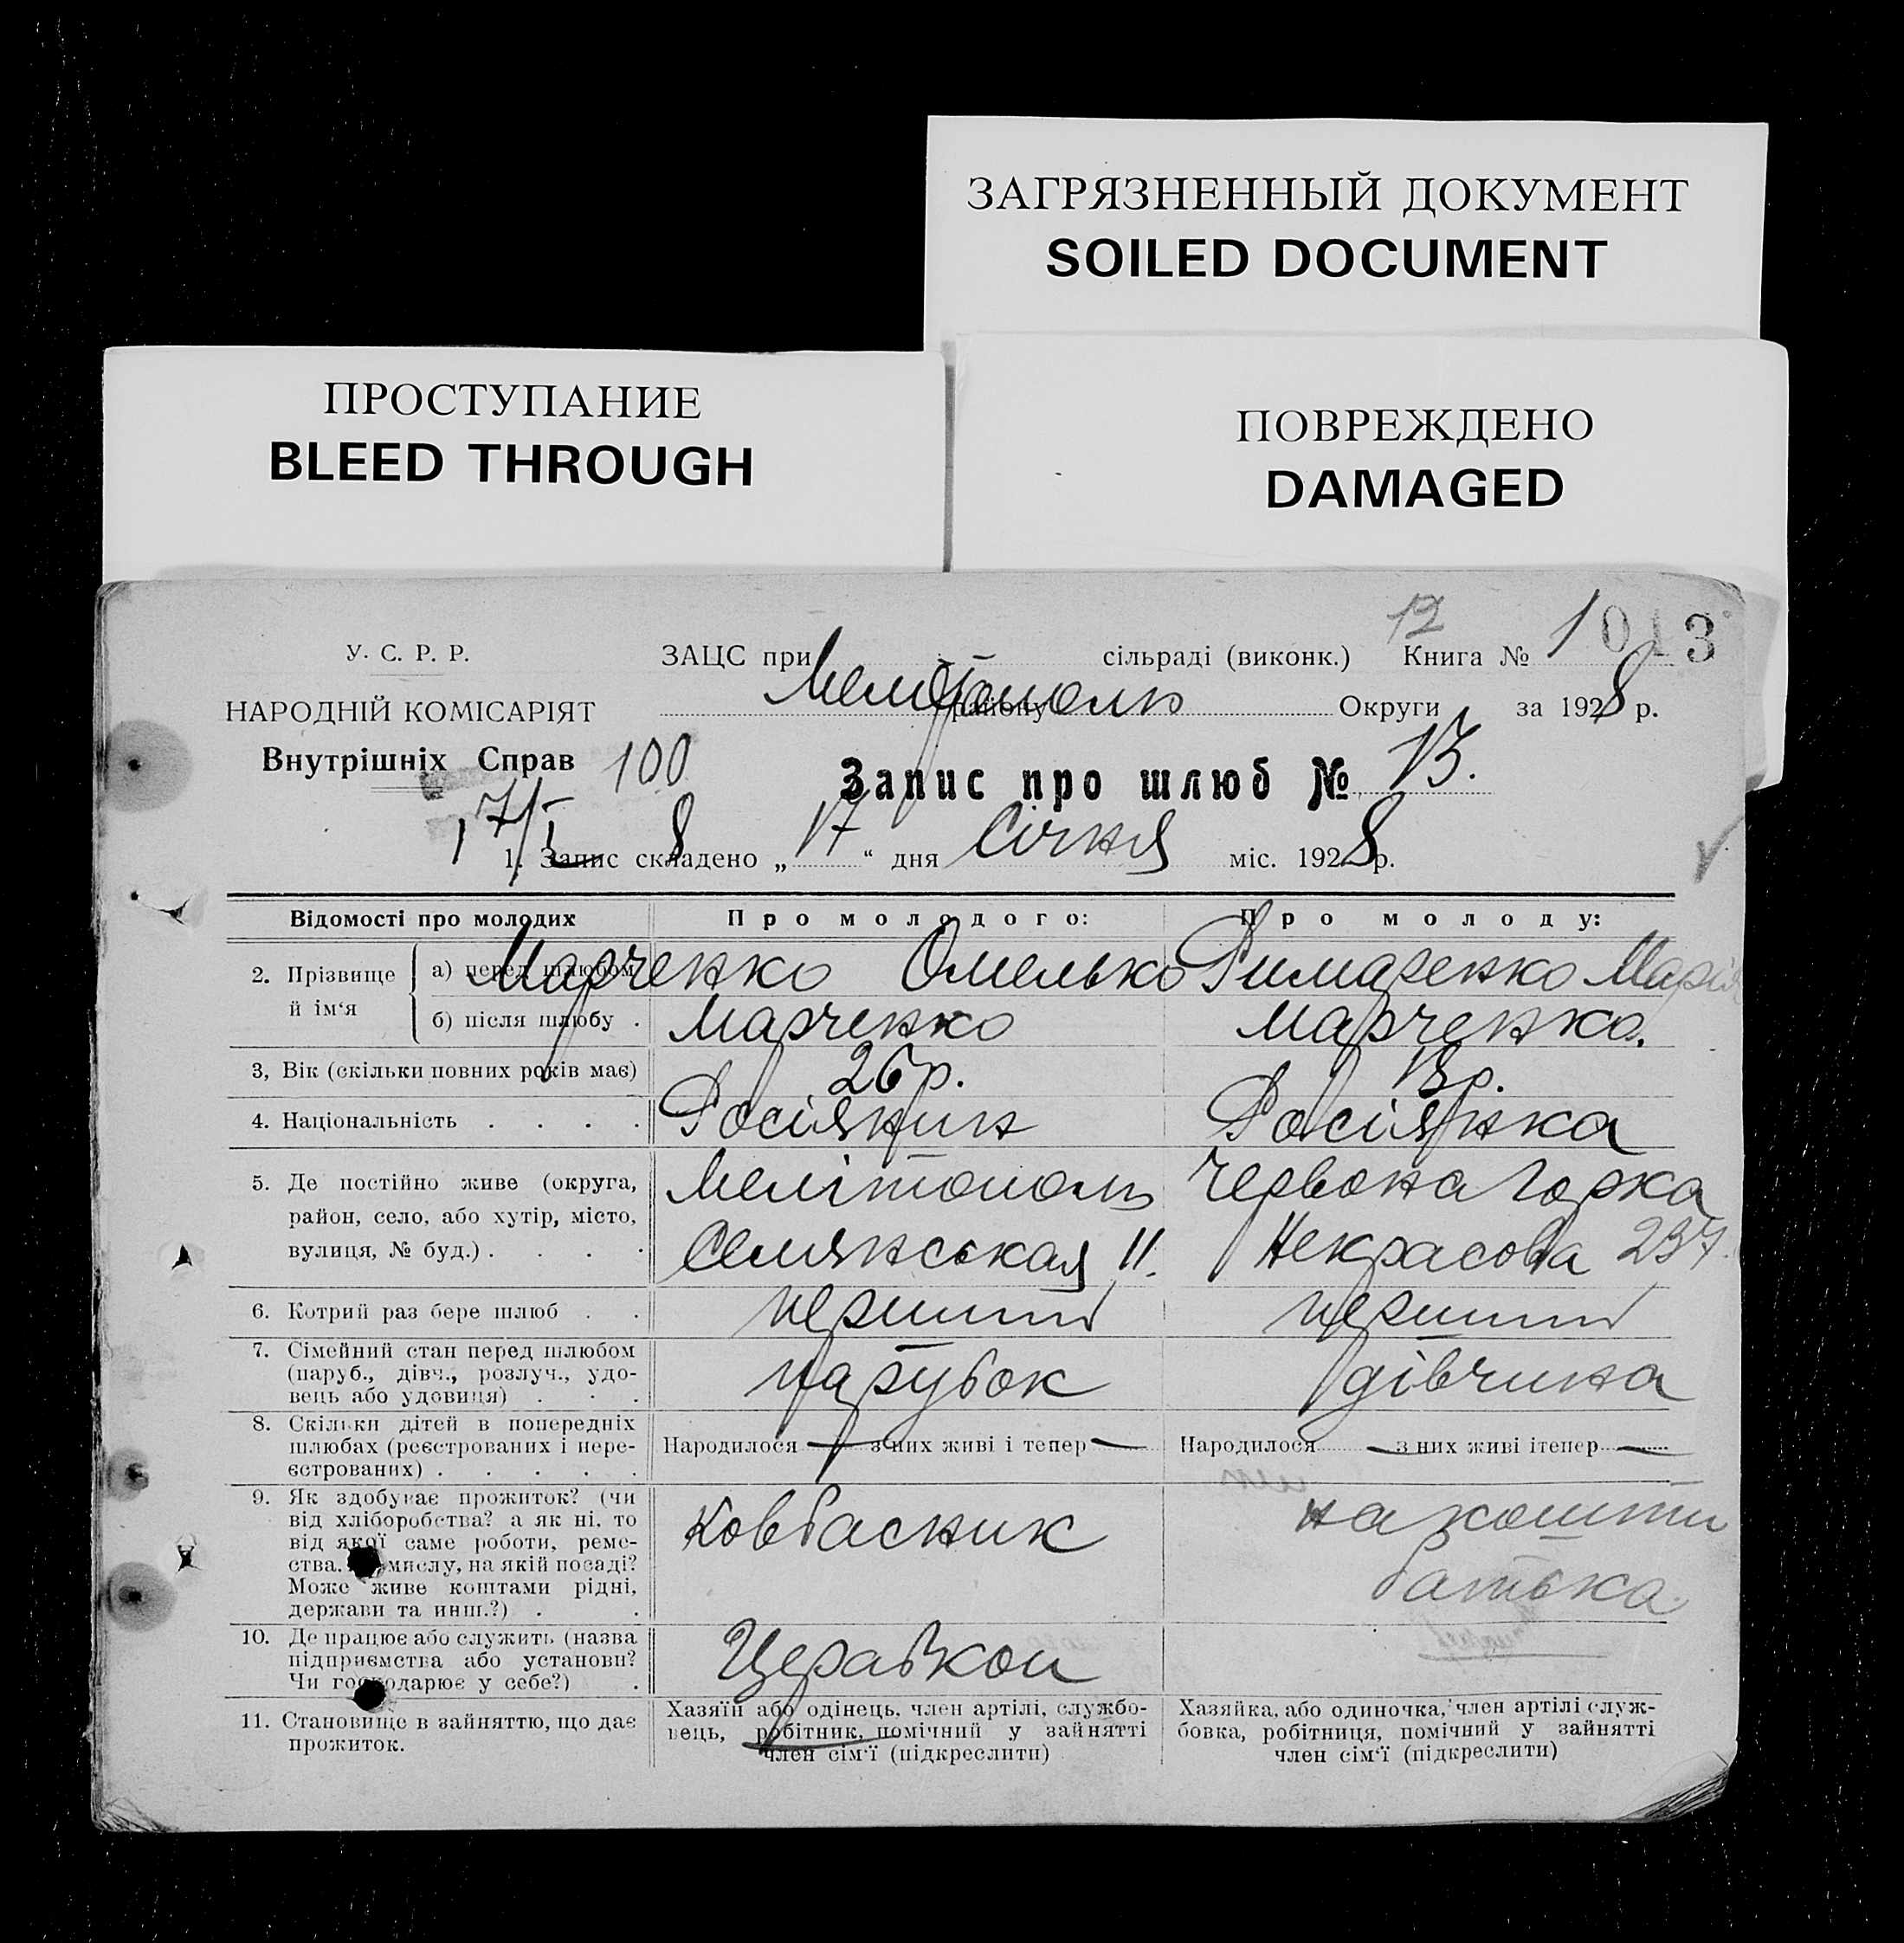 ЗАГРЯЗНЕННЫЙ ДОКУМЕНТ
SOILED DOCUMENT
ПРОСТУПАНИЕ
BLEED THROUGH
ПОВРЕЖДЕНО
DAMAGED
12
013
У. С. Р. Р.
ЗАЦС при сільраді (виконк.) Книга № 1
НАРОДНІЙ КОМІСАРІЯТ
Мелітополь району Округи за 1928 р.
Внутрішніх Справ
100
Запис про шлюб № 13.
17/I 8
1. Запис складено „17“ дня Січня міс. 1928 р.
Відомості про молодих Про молодого: Про молоду:
2. Прізвище й ім‘я
а) перед шлюбом Марченко Омелько Римаренко Марія
б) після шлюбу . Марченко Марченко.
3, Вік (скільки повних років має) 26 р. 18 р.
4. Національність . . . . Росіянин Росіянка
5. Де постійно живе (округа, район, село, або хутір, місто, вулиця, № буд.) . . . .
Мелітополь
Семянськая 11.
Червона Горка
Некрасова 237.
6. Котрий раз бере шлюб . . перший перший
7. Сімейний стан перед шлюбом
(паруб., дівч., розлуч., удо-
вець або удовиця) . . .
парубок дівчина
8. Скільки дітей в попередніх
шлюбах (реєстрованих і нере-
єстрованих) . . . . .
Народилося — з них живі і тепер — Народилося — з них живі ітепер —
9. Як здобуває прожиток? (чи
від хліборобства? а як ні, то
від якої саме роботи, реме-
ства. мислу, на якій посаді?
Може живе коштами рідні,
держави та инш.?) . .
Ковбасник
на кошти
батька
10. Де працює або служить (назва
підприємства або установи?
Чи господарює у себе?) .
Церабкоп
11. Становище в зайняттю, що дає
прожиток.
Хазяїн або одінець, член артілі, службо-
вець, робітник, помічний у зайнятті
член сім‘ї (підкреслити)
Хазяйка, або одиночка, член артілі служ-
бовка, робітниця, помічний у зайнятті
член сім‘ї (підкреслити)